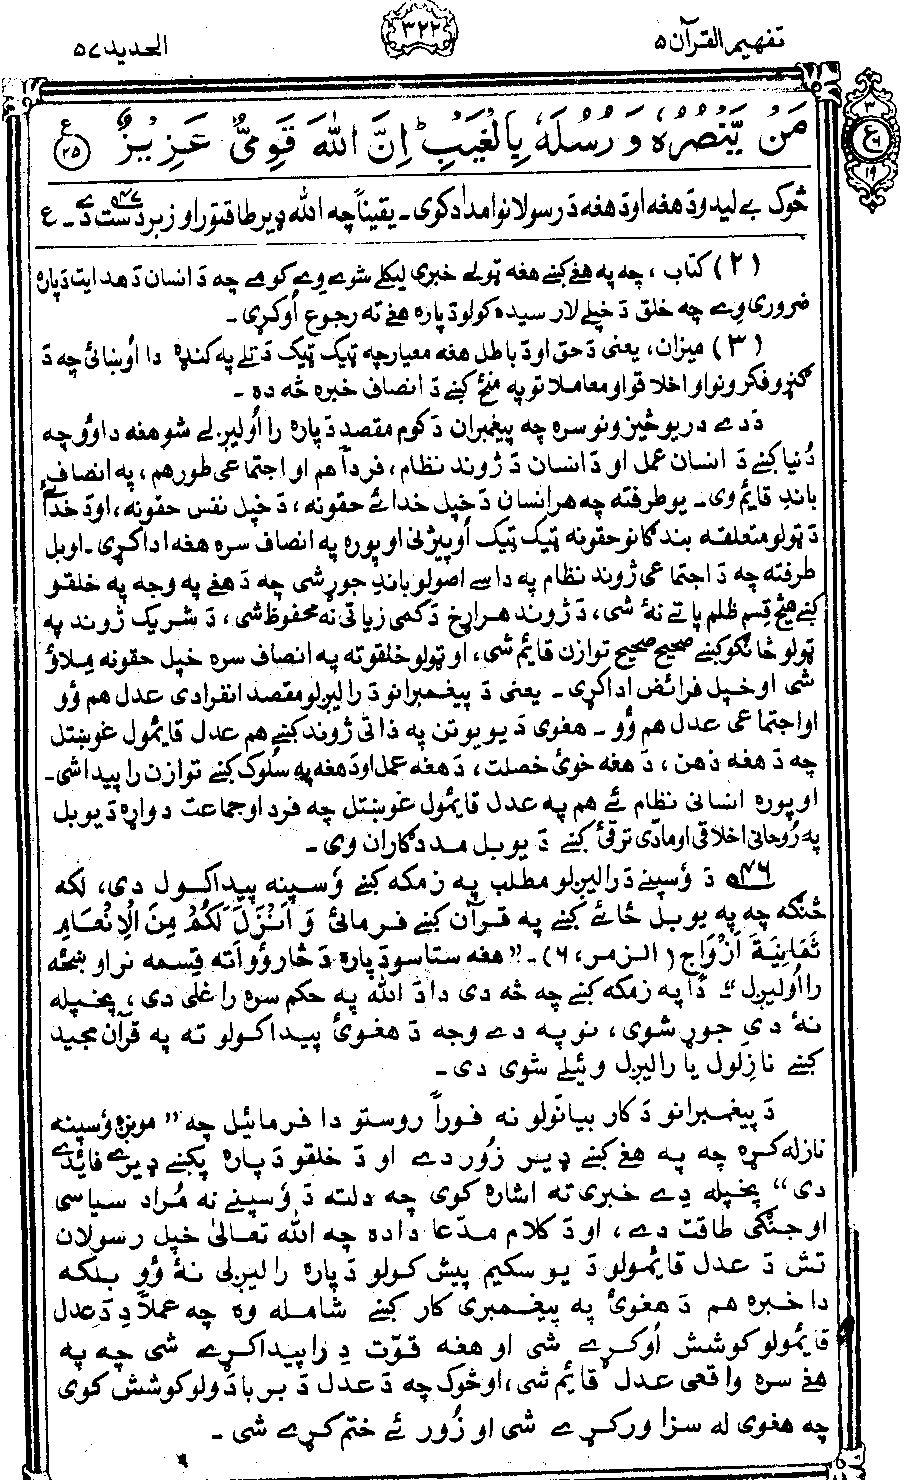 تفهيم القرآن ۵
۳۲۲
الحديد ۵۷
مَنْ يَّنْصُرُهٗ وَ رُسُلَهٗ بِالْغَيْبِ ؕ اِنَّ اللّٰهَ قَوِىٌّ عَزِيْزٌ
ع
۲۵
۳
ع
۹
۱۹
څوک بے ليدو دَ هغه او دَ هغه دَ رسولانو امداد کوى۔ يقيناً چه الله ډير طاقتور او زبردست دے۔ ع
(۲) کتاب ، چه په هغے کښے هغه ټولے خبرى ليکلے شوے وے کومے چه دَ انسان دَ هدايت دَپاره
ضرورى وے چه خلق دَ خپلے لار سيده کولو دَپاره هغے ته رجوع اُوکړى۔
(۳) ميزان، يعنى دَحق او دَ باطل هغه معيار چه ټيک ټيک دَ تلے په کنډه دا اوښائى چه دَ
فکرونو او اخلاقو او معاملاتو په منځ کښے دَ انصاف خبره څه ده۔
دَ دے دريو څيزونو سره چه پيغمبران دَ کوم مقصد دَپاره را اُوليږلے شو هغه دا وُو چه
دُنيا کښے دَ انسان عمل او دَ انسان دَ ژوند نظام، فرداً هم او اجتماعى طور هم، په انصاف
باندِ قايم وى۔ يو طرفته چه هر انسان دَ خپل خدائے حقونه، دَ خپل نفس حقونه، او دَ خدائے
دَ ټولو متعلقه بندگانو حقونه ټيک ټيک اُوپيژنى او پوره په انصاف سره هغه ادا کړى۔ او بل
طرفته چه دَ اجتماعى ژوند نظام په داسے اصولو باندِ جوړ شى چه دَ هغے په وجه په خلقو
کښے هيڅ قسم ظلم پاتے نۀ شى، دَ ژوند هر اړخ دَ کمى زياتى نه محفوظ شى، دَ شريک ژوند په
ټولو څانگو کښے صحيح صحيح توازن قايم شى، او ټولو خلقو ته په انصاف سره خپل حقونه ملاؤ
شى او خپل فرائض ادا کړى۔ يعنى دَ پيغمبرانو دَ راليږلو مقصد انفرادى عدل هم وُو
او اجتماعى عدل هم وُو۔ هغوى دَ يو يو تن په ذاتى ژوند کښے هم عدل قايمول غوښتل
چه دَ هغه ذهن، دَ هغه خوئ خصلت، دَ هغه عمل او دَ هغه په سلوک کښے توازن را پيدا شى۔
او پوره انسانى نظام ئے هم په عدل قايمول غوښتل چه فرد او جماعت دواړه دَ يو بل
په رُوحانى اخلاقى او مادّى ترقئ کښے دَ يو بل مددگاران وى۔
۴۶ دَ وَسپنے دَ راليږلو مطلب په زمکه کښے وَسپنه پيدا کول دى، لکه
څنگه چه په يو بل ځائے کښے په قرآن کښے فرمائى وَ اَنْزَلَ لَكُمْ مِنَ الْاَنْعَامِ
ثَمَانِيَةَ اَزْوَاجٍ (الزمر، ۶)۔ ”هغه ستاسو دَپاره دَ څاروؤ اته قسمه نر او ښځه
را اُوليږل“۔ دَا په زمکه کښے چه څه دى دا دَ الله په حکم سره را غلى دى، پخپله
نۀ دى جوړ شوى، نو په دے وجه دَ هغوئ پيدا کولو ته په قرآن مجيد
کښے نازِلول يا راليږل وئيلے شوى دى۔
دَ پيغمبرانو دَ کار بيانولو نه فوراً روستو دا فرمائيل چه ”مونږه وَسپنه
نازله کړه چه په هغے کښے ډير زور دے او دَ خلقو دَپاره پکښے ډيرے فائيدے
دى“ پخپله دے خبرى ته اشاره کوى چه دلته دَ وَسپنے نه مُراد سياسى
او جنگى طاقت دے ، او دَ کلام مدّعا دا ده چه الله تعالىٰ خپل رسولان
تش دَ عدل قايمولو دَ يو سکيم پيش کولو دَپاره را ليږلى نۀ وُو بلکه
دا خبره هم دَ هغوئ په پيغمبرى کار کښے شامله وه چه عملاً دِ دَ عدل
قايمولو کوشش اُوکړے شى او هغه قوّت دِ را پيدا کړے شى چه په
هغے سره واقعى عدل قائم شى، او څوک چه دَ عدل دَ بربادولو کوشش کوى
چه هغوى له سزا ورکړے شى او زور ئے ختم کړے شى۔